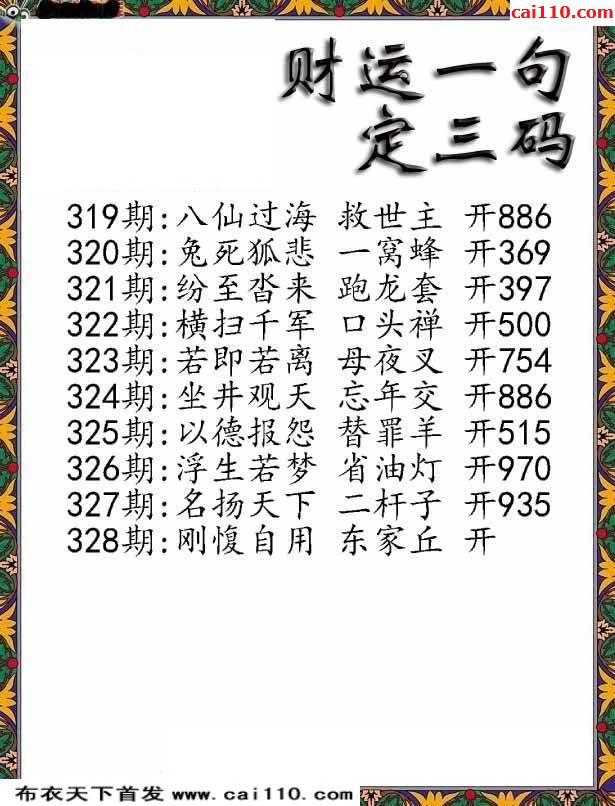 cai110.com
财运一句
定三码
319期:八仙过海 救世主 开886
320期:兔死狐悲 一窝蜂 开369
321期:纷至沓来 跑龙套 开397
322期:横扫千军 口头禅 开500
323期:若即若离 母夜叉 开754
324期:坐井观天 忘年交 开886
325期:以德报怨 替罪羊 开515
326期:浮生若梦 省油灯 开970
327期:名扬天下 二杆子 开935
328期:刚愎自用 东家丘 开
布衣天下首发 www.cai110.com